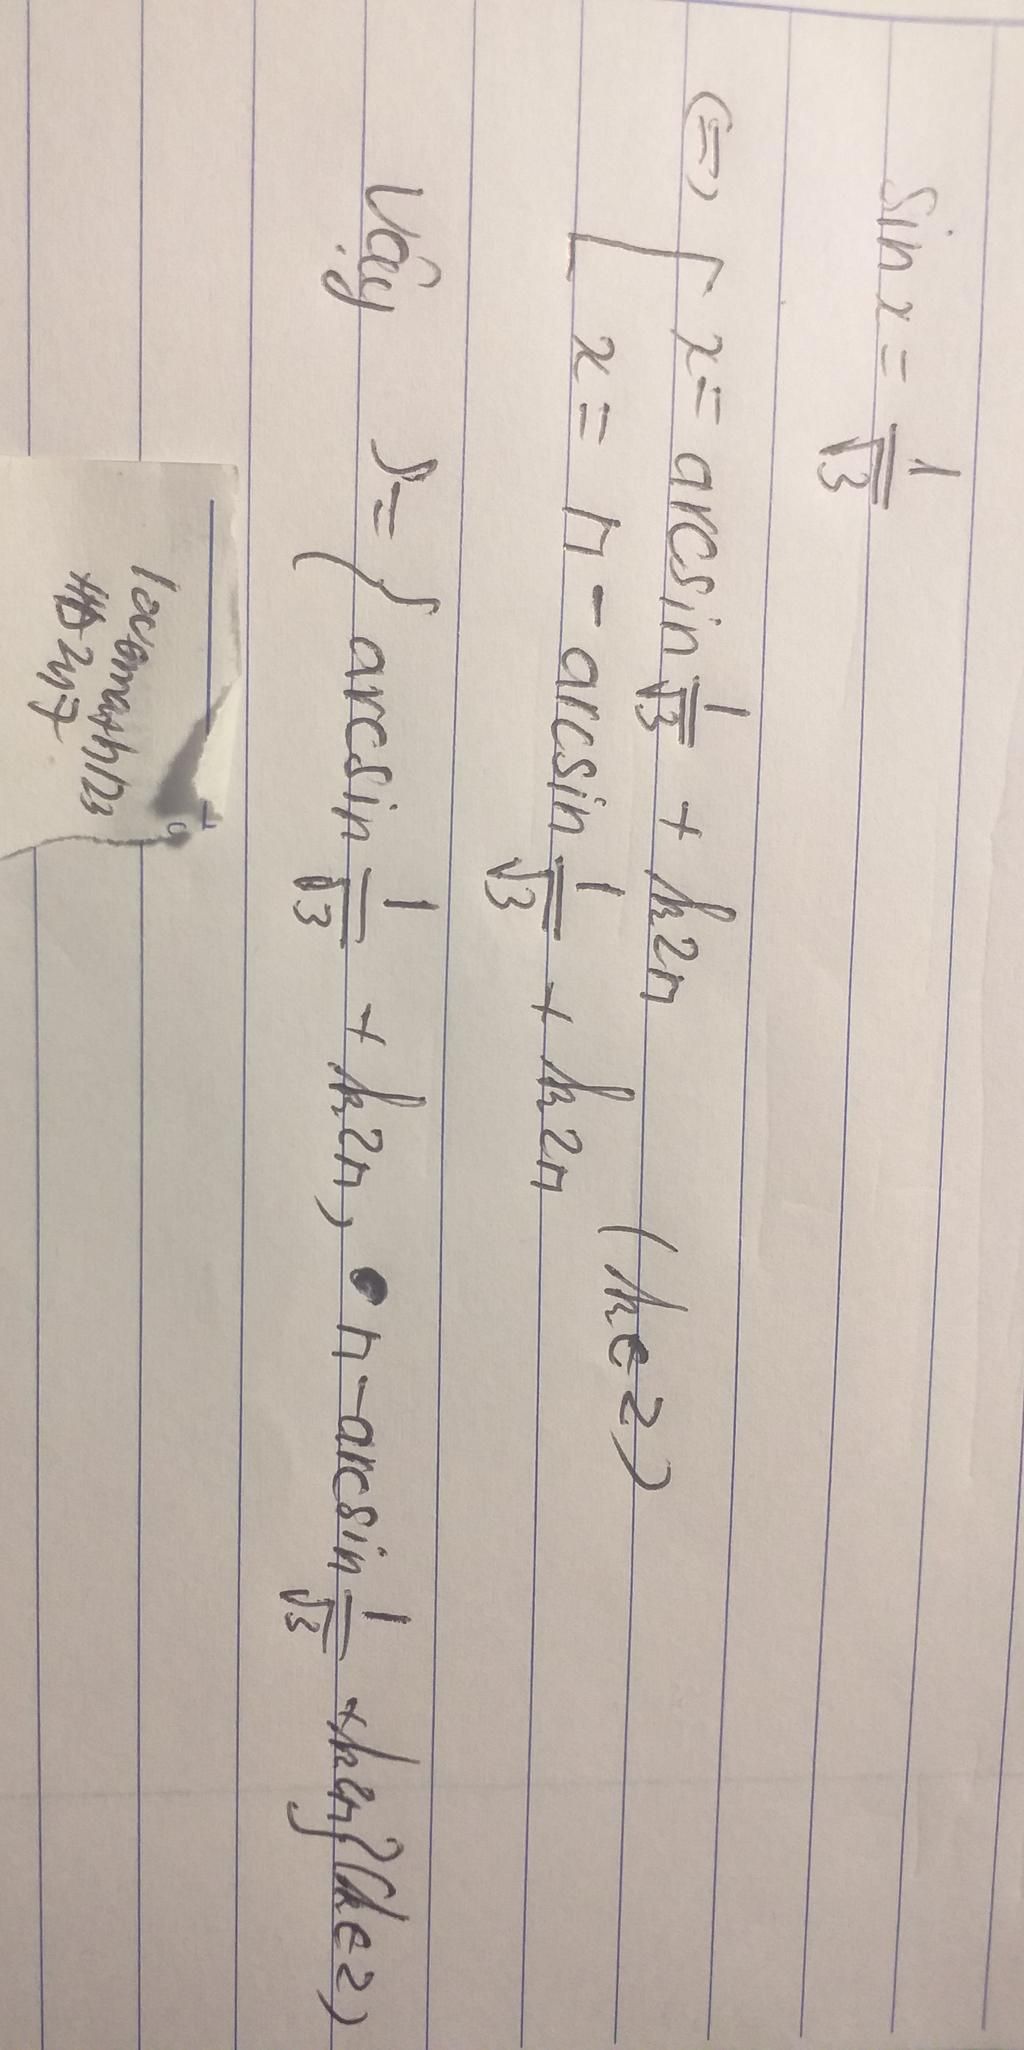 sin x = 1/√3
(=) [ x = arcsin 1/√3 + k2π
x = π - arcsin 1/√3 + k2π (k ∈ Z)
Vậy S = { arcsin 1/√3 + k2π, π - arcsin 1/√3 + k2π} (k ∈ Z)